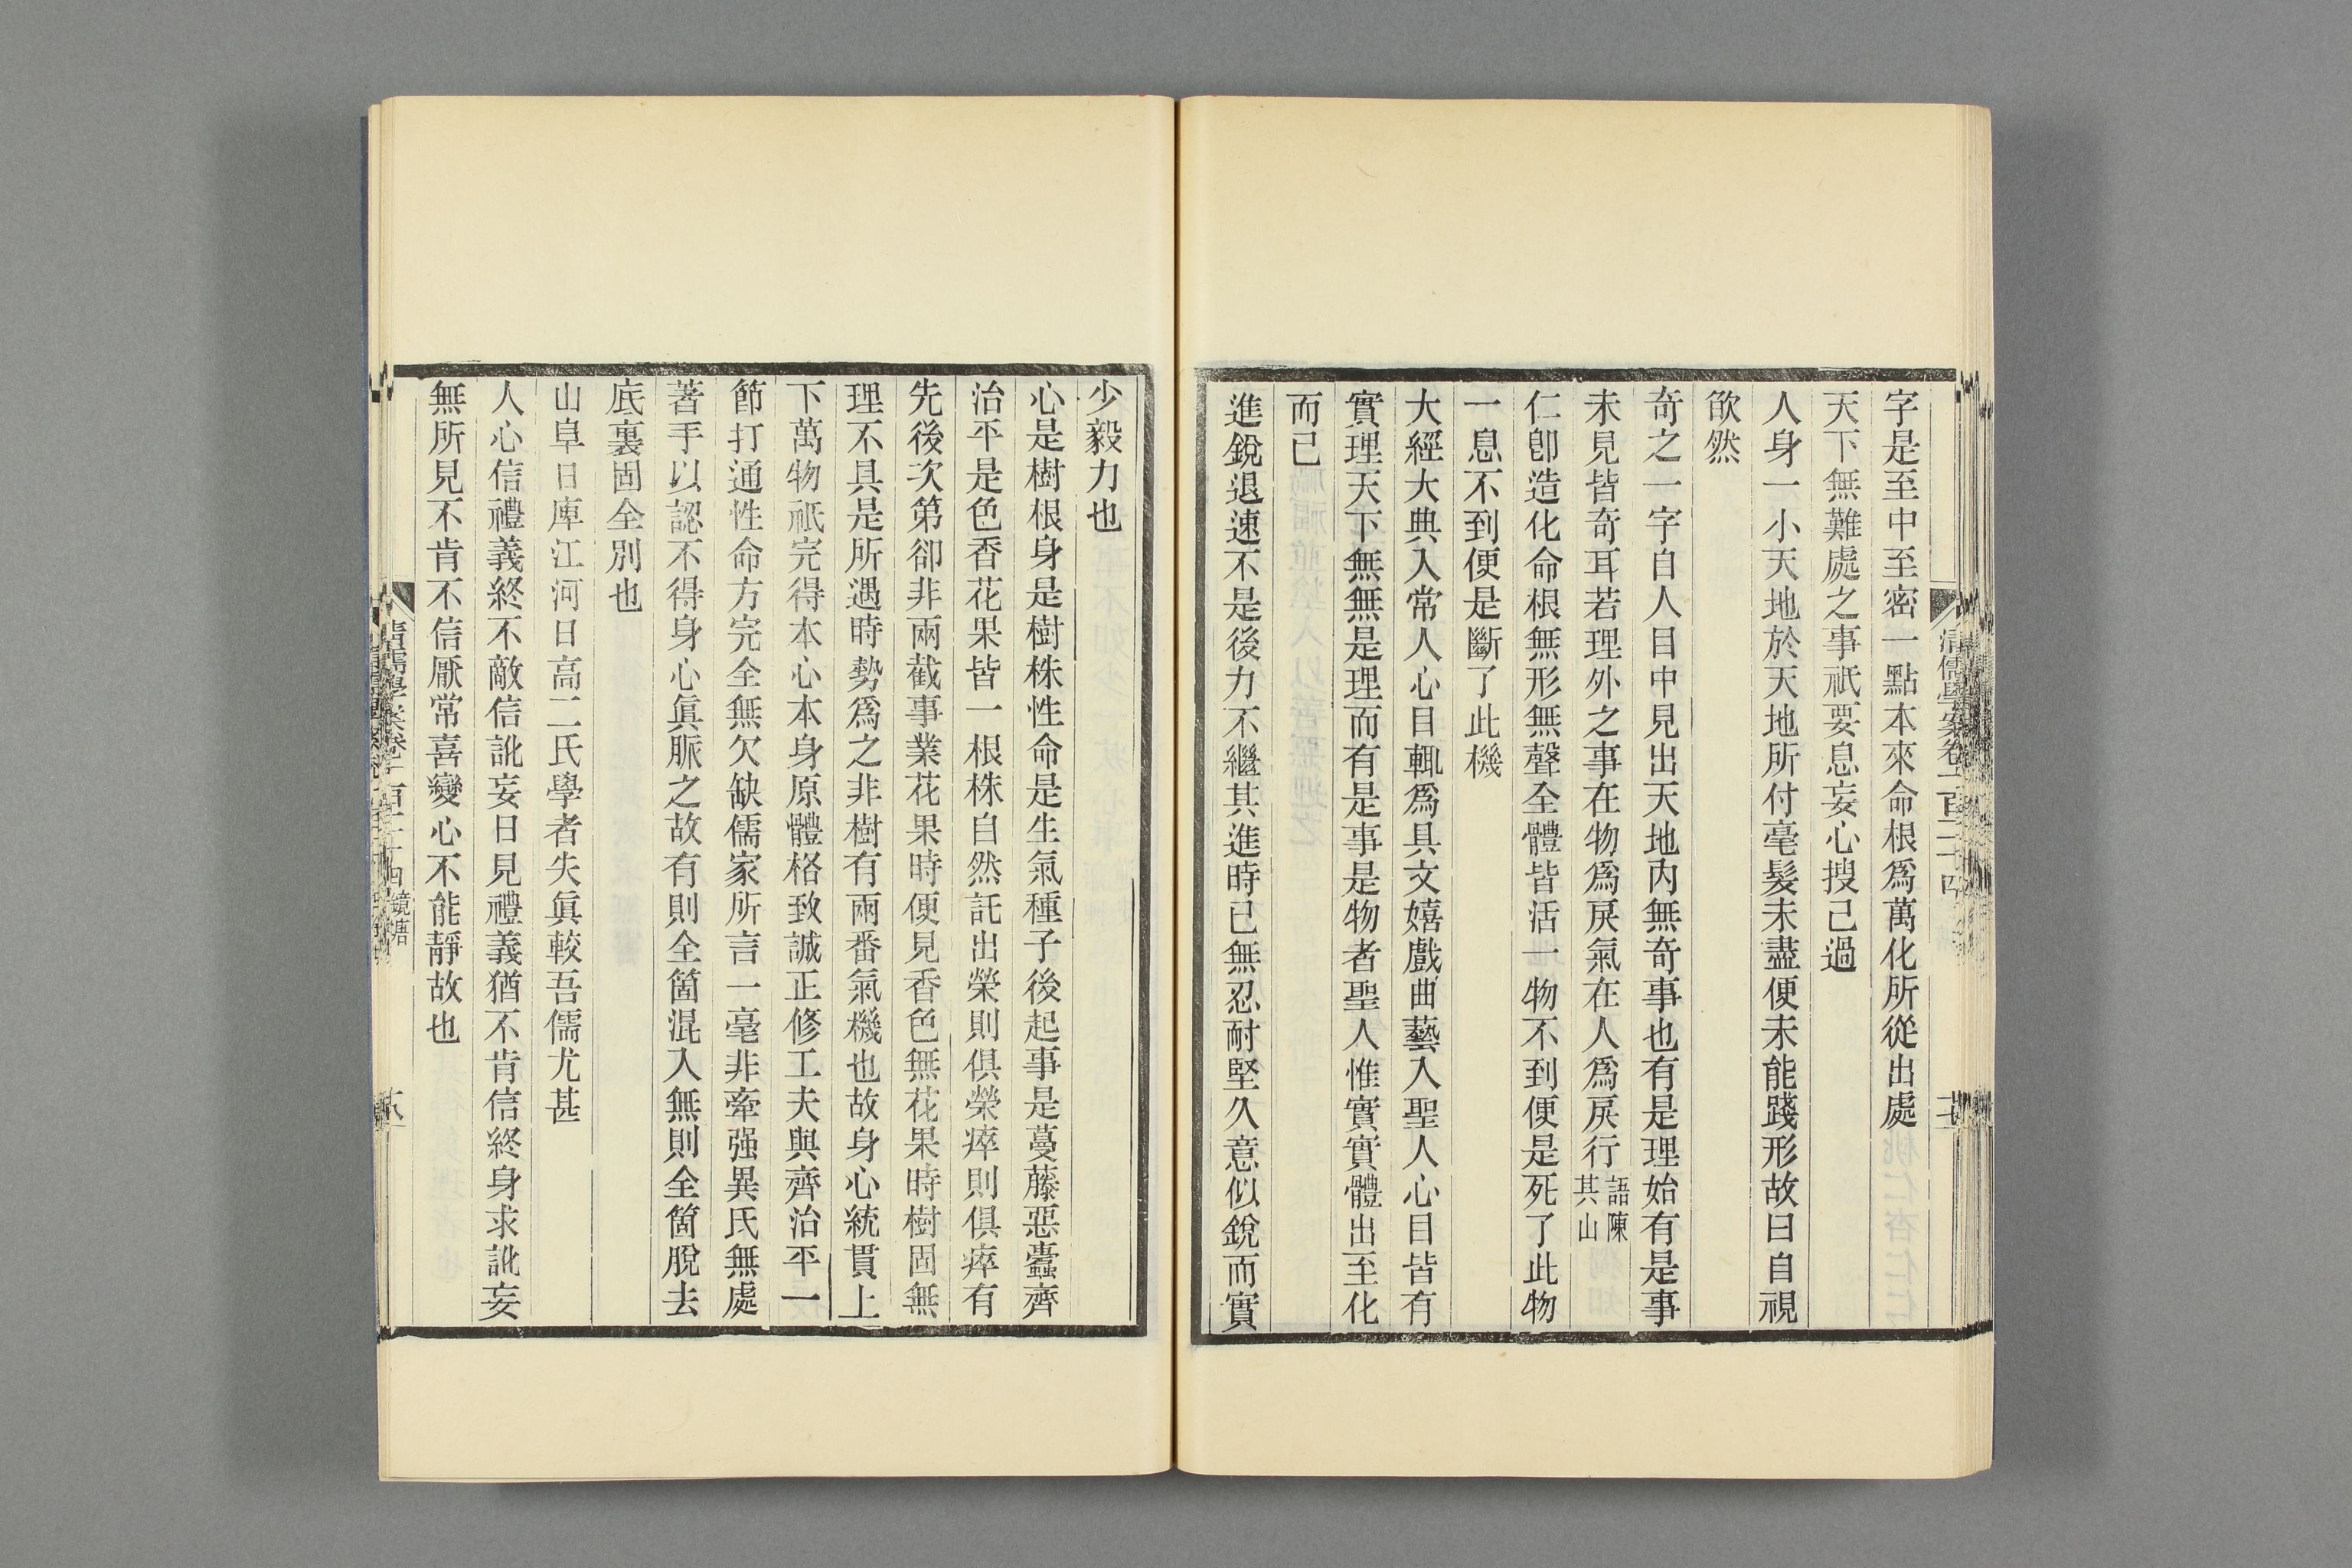 字是至中至密一點本來命根爲萬化所從出處
天下無難處之事祇要息妄心搜己過
人身一小天地於天地所付毫髮未盡便未能踐形故曰自視
欿然
奇之一字自人目中見出天地內無奇事也有是理始有是事
未見皆奇耳若理外之事在物爲戾氣在人爲戾行語陳其山
仁卽造化命根無形無聲全體皆活一物不到便是死了此物
一息不到便是斷了此機
大經大典入常人心目輒爲具文嬉戲曲藝入聖人心目皆有
實理天下無無是理而有是事是物者聖人惟實實體出至化
而已
進銳退速不是後力不繼其進時已無忍耐堅久意似銳而實
少毅力也
心是樹根身是樹株性命是生氣種子後起事是蔓藤惡蠹齊
治平是色香花果皆一根株自然託出榮則俱榮瘁則俱瘁有
先後次第卻非兩截事業花果時便見香色無花果時樹固無
理不具是所遇時勢爲之非樹有兩番氣機也故身心統貫上
下萬物祇完得本心本身原體格致誠正修工夫與齊治平一
節打通性命方完全無欠缺儒家所言一毫非牽强異氏無處
著手以認不得身心眞脈之故有則全箇混入無則全箇脫去
底裏固全別也
山阜日庳江河日高二氏學者失眞較吾儒尤甚
人心信禮義終不敵信訛妄日見禮義猶不肯信終身求訛妄
無所見不肯不信厭常喜變心不能靜故也
清儒學案卷一百二十四 鏡塘